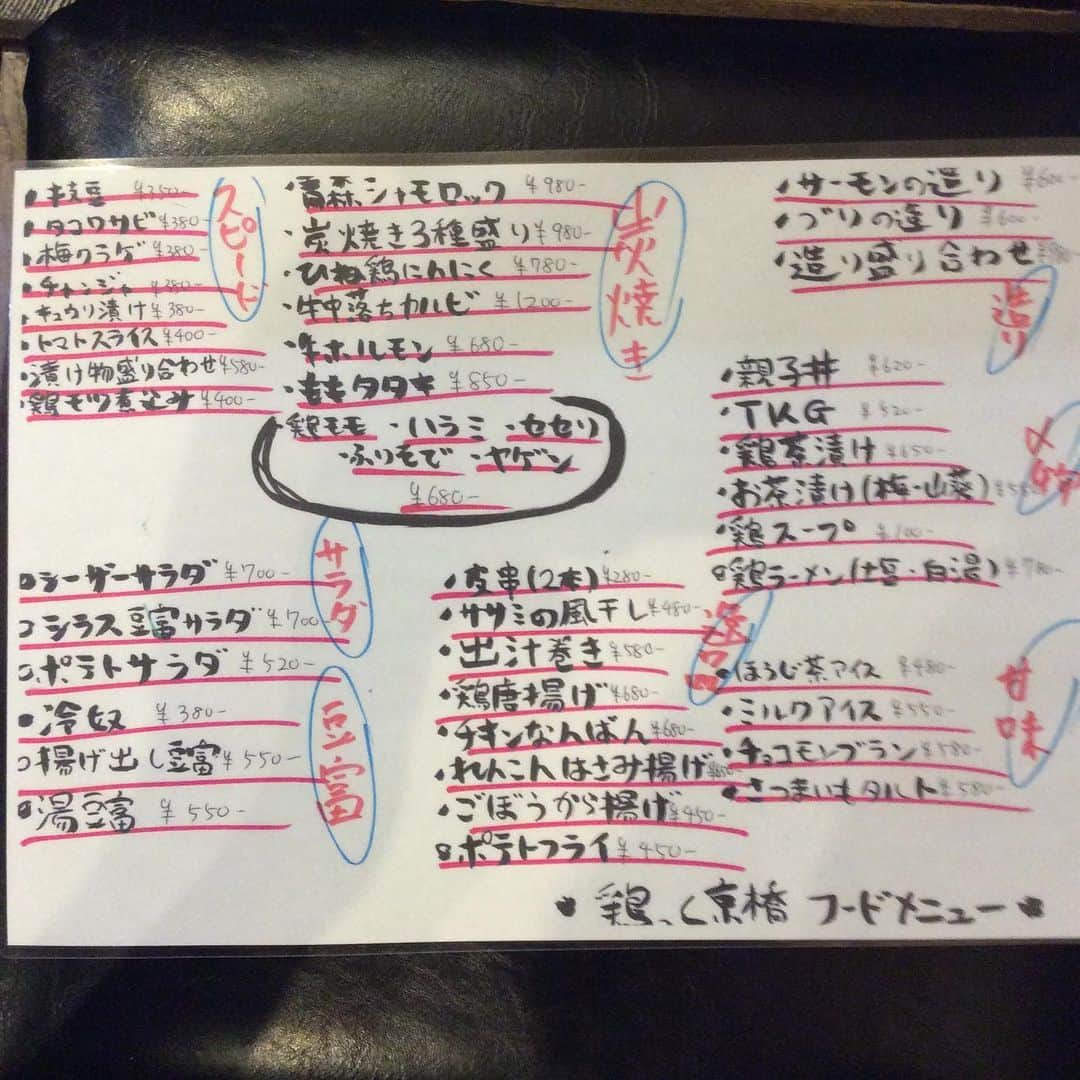 スピード
・枝豆 ¥350-
・タコワサビ ¥380-
・梅クラゲ ¥380-
・チャンジャ ¥380-
・キュウリ漬け ¥380-
・トマトスライス ¥400-
・漬け物盛り合わせ ¥580-
・鶏モツ煮込み ¥400-
炭焼き
・青森シャモロック ¥980-
・炭焼き3種盛り ¥980-
・ひね鶏にんにく ¥780-
・牛中落ちカルビ ¥1200-
・牛ホルモン ¥680-
・ももタタキ ¥850-
・鶏モモ ・ハラミ ・セセリ
・ふりそで ・ヤゲン
¥680-
造り
・サーモンの造り ¥600-
・ブリの造り ¥600-
・造り盛り合わせ
〆
・親子丼 ¥620-
・TKG ¥320-
・鶏茶漬け ¥650-
・お茶漬け(梅・山葵)
・鶏スープ ¥100-
・鶏ラーメン(・白湯) ¥780-
サラダ
・シーザーサラダ ¥700-
・シラス豆富サラダ ¥700-
・ポテトサラダ ¥520-
豆富
・冷奴 ¥380-
・揚げ出し豆富 ¥550-
・湯豆富 ¥550-
逸品
・皮串(2本) ¥280-
・ササミの風干し ¥480-
・出汁巻き ¥580-
・鶏唐揚げ ¥680-
・チキンなんばん ¥680-
・れんこんはさみ揚げ ¥650-
・ごぼうから揚げ ¥450-
・ポテトフライ ¥450-
甘味
・ほうじ茶アイス ¥480-
・ミルクアイス ¥550-
・チョコモンブラン ¥580-
・さつまいもタルト ¥580-
鶏っく京橋 フードメニュー